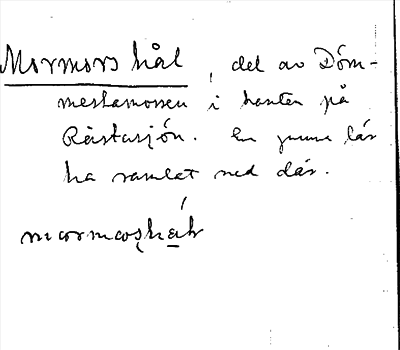 Mormors hål, del av Dom-
mestamossen i kanten på
Råstasjön. En gumma lär
ha ramlat ned där.